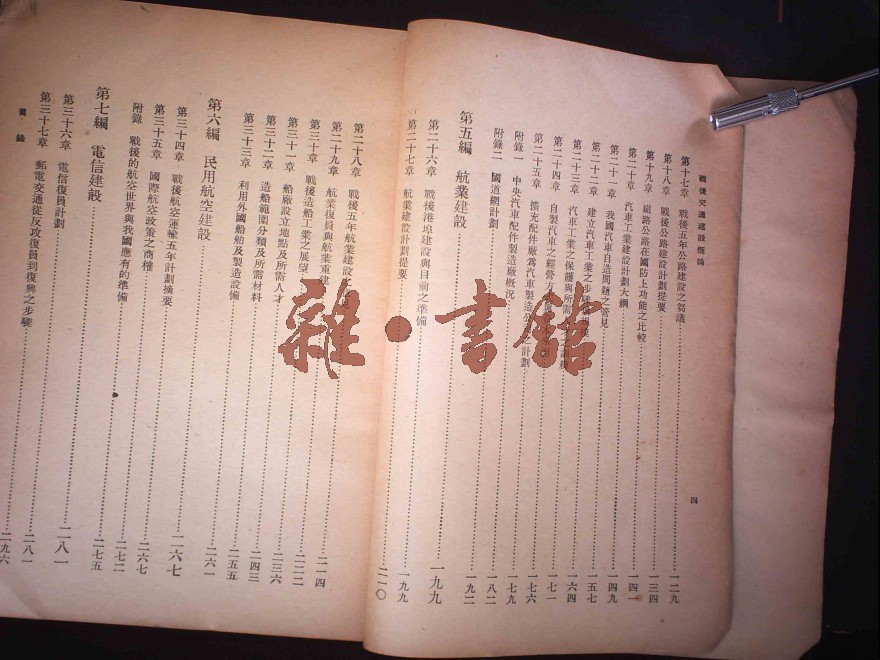 戰後交通建設概論
四
第十七章 戰後五年公路建設之芻議 一二九
第十八章 戰後公路建設計劃提要 一三四
第十九章 鐵路公路在國防上功能之比較 一四一
第二十章 汽車工業建設計劃大綱 一四九
第二十一章 我國汽車自造問題之管見 一五七
第二十二章 建立汽車工業之步 一六四
第二十三章 汽車工業之保護與所需 一七一
第二十四章 自製汽車之經營方 一七六
第二十五章 擴充配件廠為汽車製造公 之計劃 一七九
附錄一 中央汽車配件製造廠概況 一八二
附錄二 國道網計劃 一九二
第五編 航業建設 一九九
第二十六章 戰後港埠建設與目前之準備 一九九
第二十七章 航業建設計劃提要 二一〇
第二十八章 戰後五年航業建設 二一四
第二十九章 航業復員與航業重建 二二二
第三十章 戰後造船工業之展望 二三六
第三十一章 船廠設立地點及所需人才 二四三
第三十二章 造船範圍分類及所需材料 二五五
第三十三章 利用外國船舶及製造設備
第六編 民用航空建設 二六一
第三十四章 戰後航空運輸五年計劃摘要 二六七
第三十五章 國際航空政策之商榷 二六七
附錄 戰後的航空世界與我國應有的準備 二七二
第七編 電信建設 二七五
第三十六章 電信復員計劃 二八一
第三十七章 郵電交通從反攻復員到復興之步驟 二八一
二九六
目錄
雜·書館